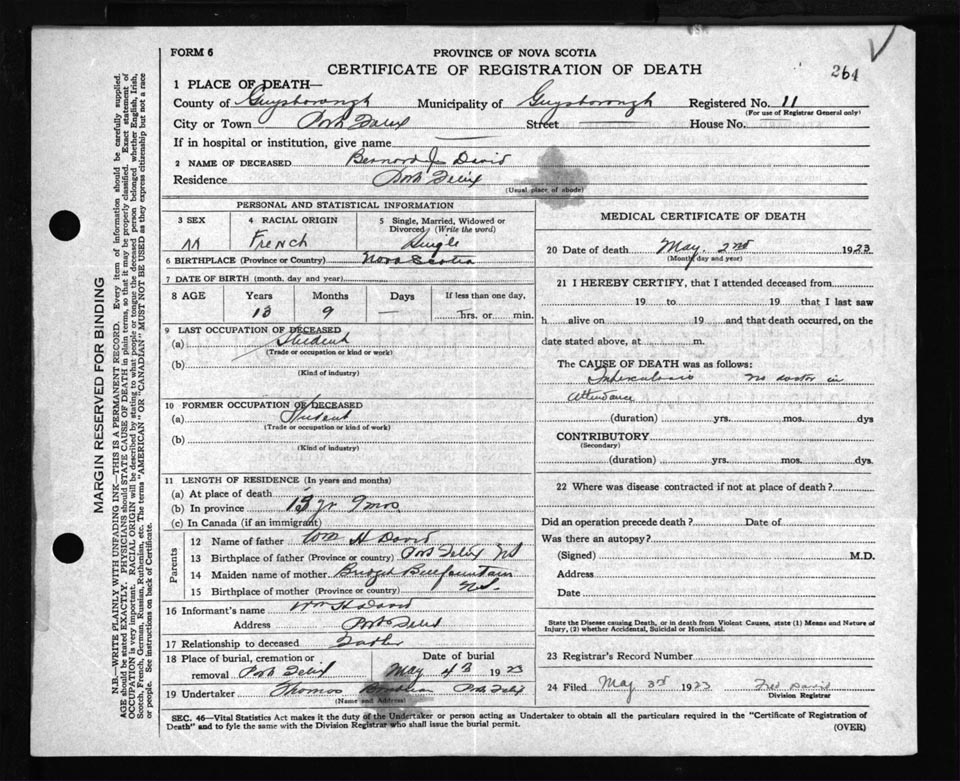 FORM 6
PROVINCE OF NOVA SCOTIA
CERTIFICATE OF REGISTRATION OF DEATH
261
1 PLACE OF DEATH—
County of Guysborough Municipality of Guysborough Registered No. 11
(For use of Registrar General only)
City or Town Port Felix Street House No.
If in hospital or institution, give name
2 NAME OF DECEASED Bernard J. David
Residence Port Felix
(Usual place of abode)
PERSONAL AND STATISTICAL INFORMATION
3 SEX 4 RACIAL ORIGIN 5 Single, Married, Widowed or Divorced (Write the word)
M French Single
6 BIRTHPLACE (Province or Country) Nova Scotia
7 DATE OF BIRTH (month, day and year)
8 AGE Years Months Days If less than one day,
13 9 — hrs. or min.
9 LAST OCCUPATION OF DECEASED
(a) Student
(Trade or occupation or kind or work)
(b)
(Kind of industry)
10 FORMER OCCUPATION OF DECEASED
(a) Student
(Trade or occupation or kind of work)
(b)
(Kind of industry)
11 LENGTH OF RESIDENCE (In years and months)
(a) At place of death
(b) In province 13 yr 9 mos
(c) In Canada (if an immigrant)
Parents
12 Name of father Wm H David
13 Birthplace of father (Province or country) Port Felix NS
14 Maiden name of mother Bridget
15 Birthplace of mother (Province or country) N.S.
16 Informant's name Wm H David
Address Port Felix
17 Relationship to deceased Father
18 Place of burial, cremation or removal Port Felix Date of burial May 3 1923
19 Undertaker Thomas Port Felix
(Name and Address)
MEDICAL CERTIFICATE OF DEATH
20 Date of death May 2nd 1923
(Month, day and year)
21 I HEREBY CERTIFY, that I attended deceased from
19 to 19 that I last saw
h alive on 19 and that death occurred, on the
date stated above, at m.
The CAUSE OF DEATH was as follows:
Tuberculosis no doctor in
attendance
(duration) yrs. mos. dys
CONTRIBUTORY
(Secondary)
(duration) yrs. mos. dys.
22 Where was disease contracted if not at place of death?
Did an operation precede death? Date of
Was there an autopsy?
(Signed) M.D.
Address
Date
State the Disease causing Death, or in death from Violent Causes, state (1) Means and Nature of
Injury, (2) whether Accidental, Suicidal or Homicidal.
23 Registrar's Record Number
24 Filed May 3rd 1923 Fred David
Division Registrar
SEC. 46—Vital Statistics Act makes it the duty of the Undertaker or person acting as Undertaker to obtain all the particulars required in the "Certificate of Registration of
Death" and to fyle the same with the Division Registrar who shall issue the burial permit.
(OVER)
MARGIN RESERVED FOR BINDING
N.B.—WRITE PLAINLY WITH UNFADING INK—THIS IS A PERMANENT RECORD. Every item of information should be carefully supplied.
AGE should be stated EXACTLY. PHYSICIANS should STATE CAUSE OF DEATH in plain terms, so that it may be properly classified. Exact statement of
OCCUPATION is very important. RACIAL ORIGIN will be described by stating to what people or tongue the deceased person belonged whether English, Irish,
Scotch, French, German, Russian, Ruthenian, etc. The terms "AMERICAN" OR "CANADIAN" MUST NOT BE USED as they express citizenship but not a race
or people. See instructions on back of Certificate.